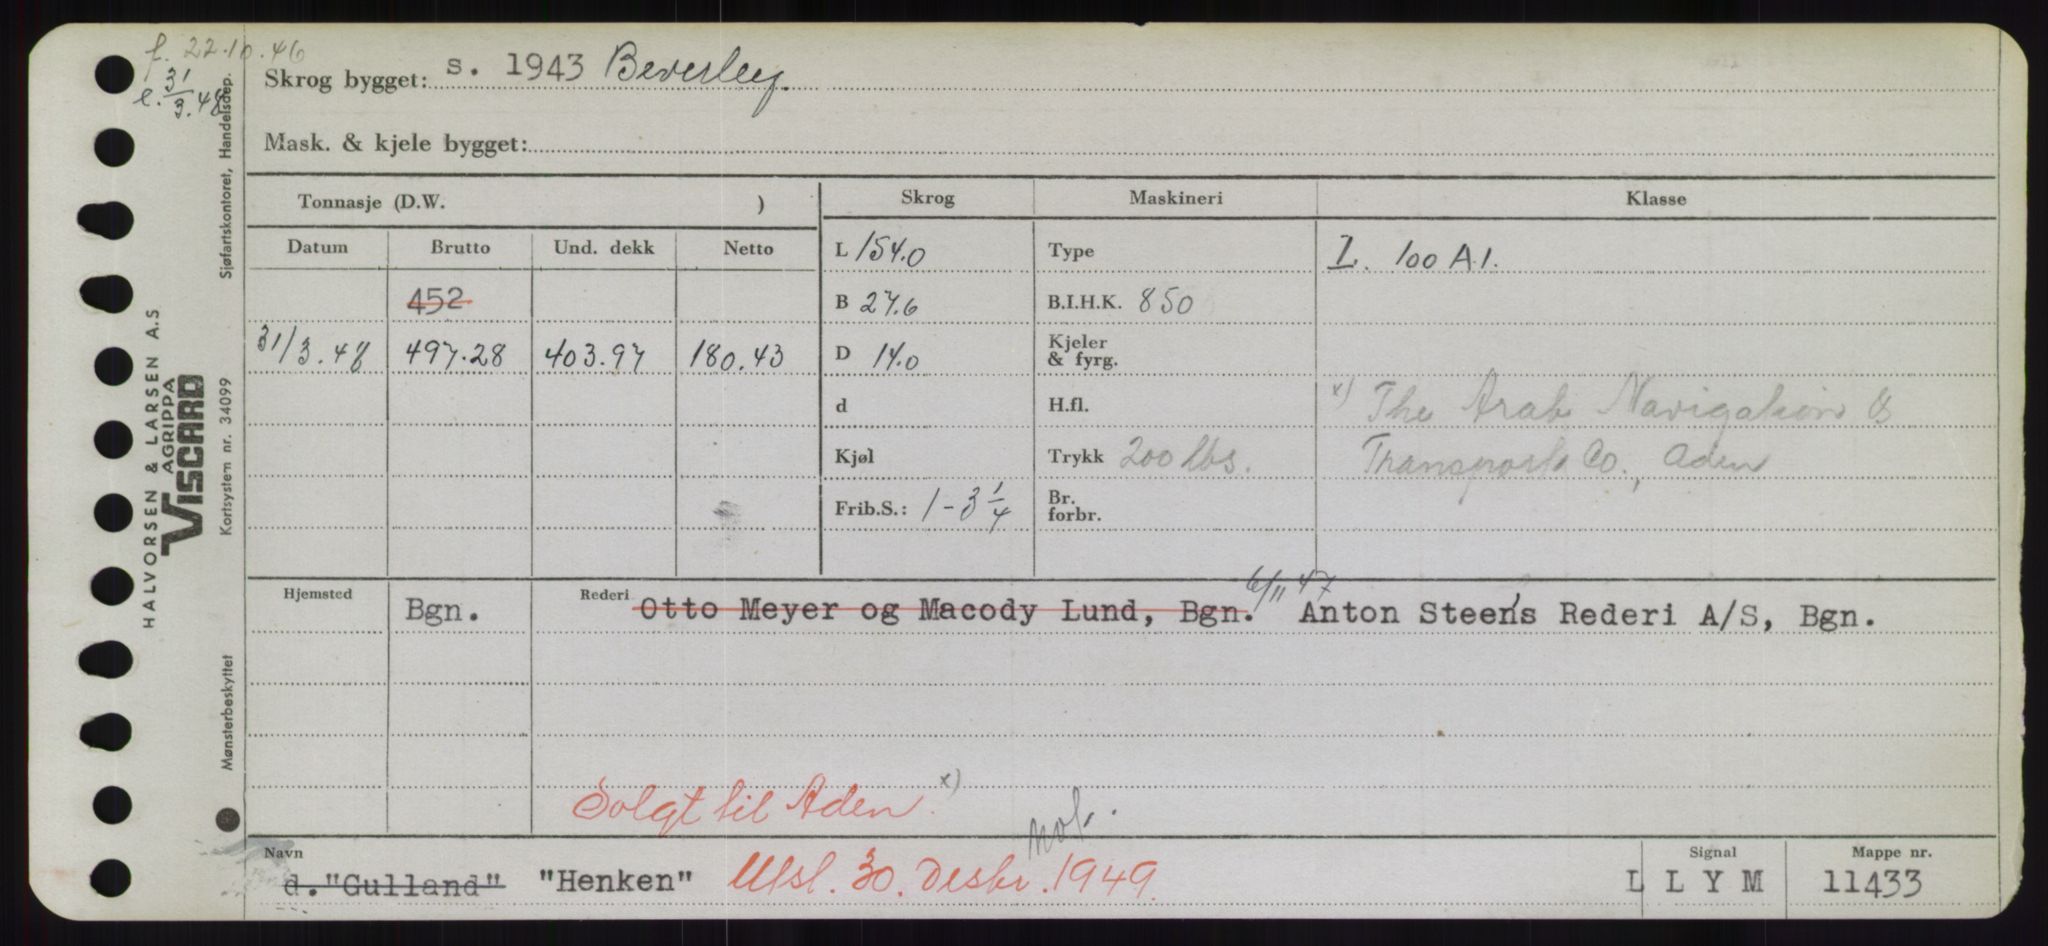 f. 22.10.46
e. 31/3.48
Skrog bygget: s. 1943 Beverley.
Mask. & kjele bygget:
Tonnasje (D.W. )
Skrog
Maskineri
Klasse
Datum Brutto Und. dekk Netto
L 154.0
Type
I. 100 A.1.
452
B 27.6
B.I.H.K. 850
31/3.48 497.28 403.97 180.43
D 14.0
Kjeler
& fyrg.
d
H.fl.
x) The Arab Navigation &
Kjøl
Trykk 200 lbs.
Transport Co., Aden
Frib.S.: 1-3 1/4
Br.
forbr.
6/11 47
Hjemsted Bgn. Rederi Otto Meyer og Macody Lund, Bgn. Anton Steen's Rederi A/S, Bgn.
Solgt til Aden. x)
Navn
d. "Gulland" "Henken" Utsl. 30. Desbr. 1949.
Signal
L L Y M
Mappe nr.
11433
HALVORSEN & LARSEN A.S
AGRIPPA
VISCARD
Mønsterbeskyttet
Kortsystem nr. 34099
Sjøfartskontoret, Handelsdep.